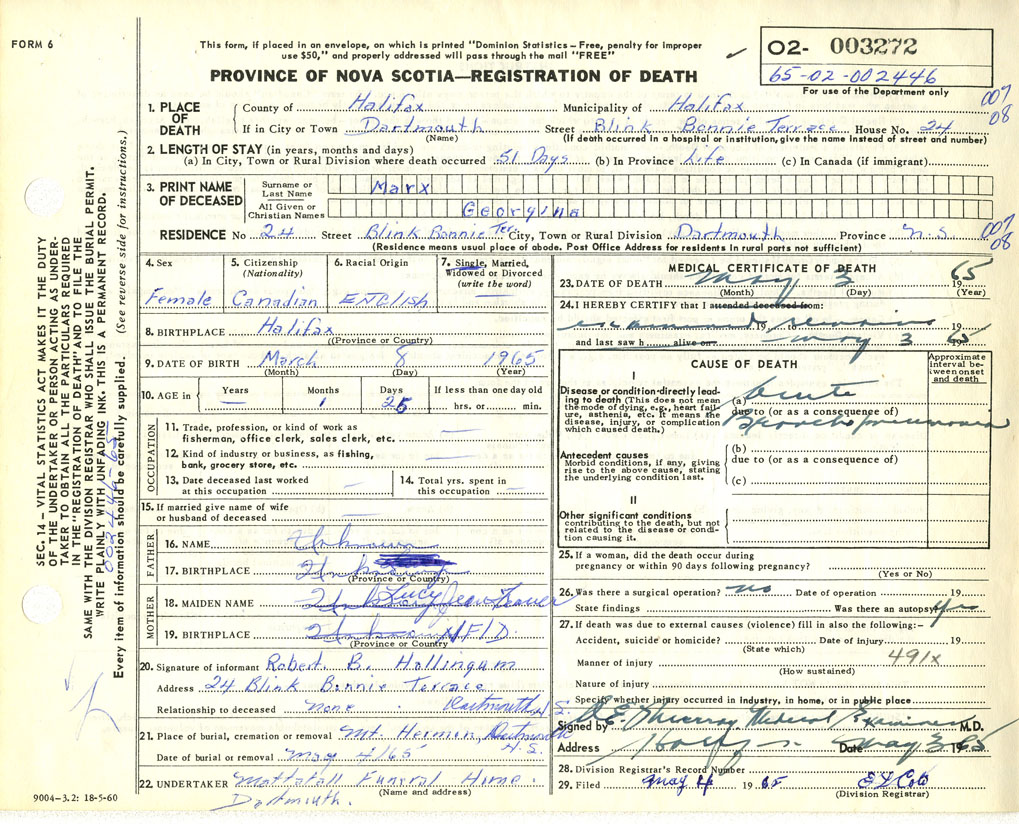 FORM 6
This form, if placed in an envelope, on which is printed "Dominion Statistics – Free, penalty for improper
use $50," and properly addressed will pass through the mail "FREE"
PROVINCE OF NOVA SCOTIA—REGISTRATION OF DEATH
O2- 003272
65-02-002446
For use of the Department only
007
08
1. PLACE OF DEATH
County of Halifax Municipality of Halifax
If in City or Town Dartmouth Street Blink Bonnie Terrace House No. 24
(Name) (If death occurred in a hospital or institution, give the name instead of street and number)
2. LENGTH OF STAY (in years, months and days)
(a) In City, Town or Rural Division where death occurred 51 Days (b) In Province Life (c) In Canada (if immigrant)
3. PRINT NAME OF DECEASED
Surname or Last Name Marx
All Given or Christian Names Georgina
RESIDENCE No 24 Street Blink Bonnie Ter City, Town or Rural Division Dartmouth Province N.S.
007
08
(Residence means usual place of abode. Post Office Address for residents in rural parts not sufficient)
4. Sex
Female
5. Citizenship
(Nationality)
Canadian
6. Racial Origin
ENGlish
7. Single, Married,
Widowed or Divorced
(write the word)
8. BIRTHPLACE Halifax
(Province or Country)
9. DATE OF BIRTH March 8 1965
(Month) (Day) (Year)
10. AGE in Years Months Days If less than one day old
— 1 25 hrs. or min.
OCCUPATION
11. Trade, profession, or kind of work as
fisherman, office clerk, sales clerk, etc. —
12. Kind of industry or business, as fishing,
bank, grocery store, etc. —
13. Date deceased last worked
at this occupation —
14. Total yrs. spent in
this occupation —
15. If married give name of wife
or husband of deceased —
FATHER
16. NAME Unknown
17. BIRTHPLACE
(Province or Country)
MOTHER
18. MAIDEN NAME Lucy Jean
19. BIRTHPLACE Unknown NFLD.
(Province or Country)
20. Signature of informant Robert B. Hollingum
Address 24 Blink Bonnie Terrace
Relationship to deceased none Dartmouth N.S.
21. Place of burial, cremation or removal Mt. Hermon, Dartmouth
N.S.
Date of burial or removal May 4/65
22. UNDERTAKER Mattatall Funeral Home.
(Name and address)
Dartmouth.
9004–3.2: 18-5-60
MEDICAL CERTIFICATE OF DEATH
23. DATE OF DEATH May 3 1965
(Month) (Day) (Year)
24. I HEREBY CERTIFY that I attended deceased from:
examined 19 to remains 19
and last saw h alive on May 3 1965
CAUSE OF DEATH
Approximate interval between onset and death
I
Disease or condition directly leading to death (This does not mean the mode of dying, e.g., heart failure, asthenia, etc. It means the disease, injury, or complication which caused death.)
(a) Acute
due to (or as a consequence of)
Broncho pneumonia
Antecedent causes
Morbid conditions, if any, giving rise to the above cause, stating the underlying condition last.
(b)
due to (or as a consequence of)
(c)
II
Other significant conditions
contributing to the death, but not related to the disease or condition causing it.
25. If a woman, did the death occur during
pregnancy or within 90 days following pregnancy?
(Yes or No)
26. Was there a surgical operation? no Date of operation 19
State findings Was there an autopsy? Yes
27. If death was due to external causes (violence) fill in also the following:–
Accident, suicide or homicide? Date of injury 19
(State which)
Manner of injury 491x
(How sustained)
Nature of injury
Specify whether injury occurred in industry, in home, or in public place
Signed by Murray Medical Examiner M.D.
Address Hfx Date May 3 1965
28. Division Registrar's Record Number
29. Filed May 4 1965
(Division Registrar)
SEC. 14 – VITAL STATISTICS ACT MAKES IT THE DUTY
OF THE UNDERTAKER OR PERSON ACTING AS UNDER-
TAKER TO OBTAIN ALL THE PARTICULARS REQUIRED
IN THE "REGISTRATION OF DEATH" AND TO FILE THE
SAME WITH THE DIVISION REGISTRAR WHO SHALL ISSUE THE BURIAL PERMIT.
WRITE PLAINLY WITH UNFADING INK. THIS IS A PERMANENT RECORD.
Every item of information should be carefully supplied. (See reverse side for instructions.)